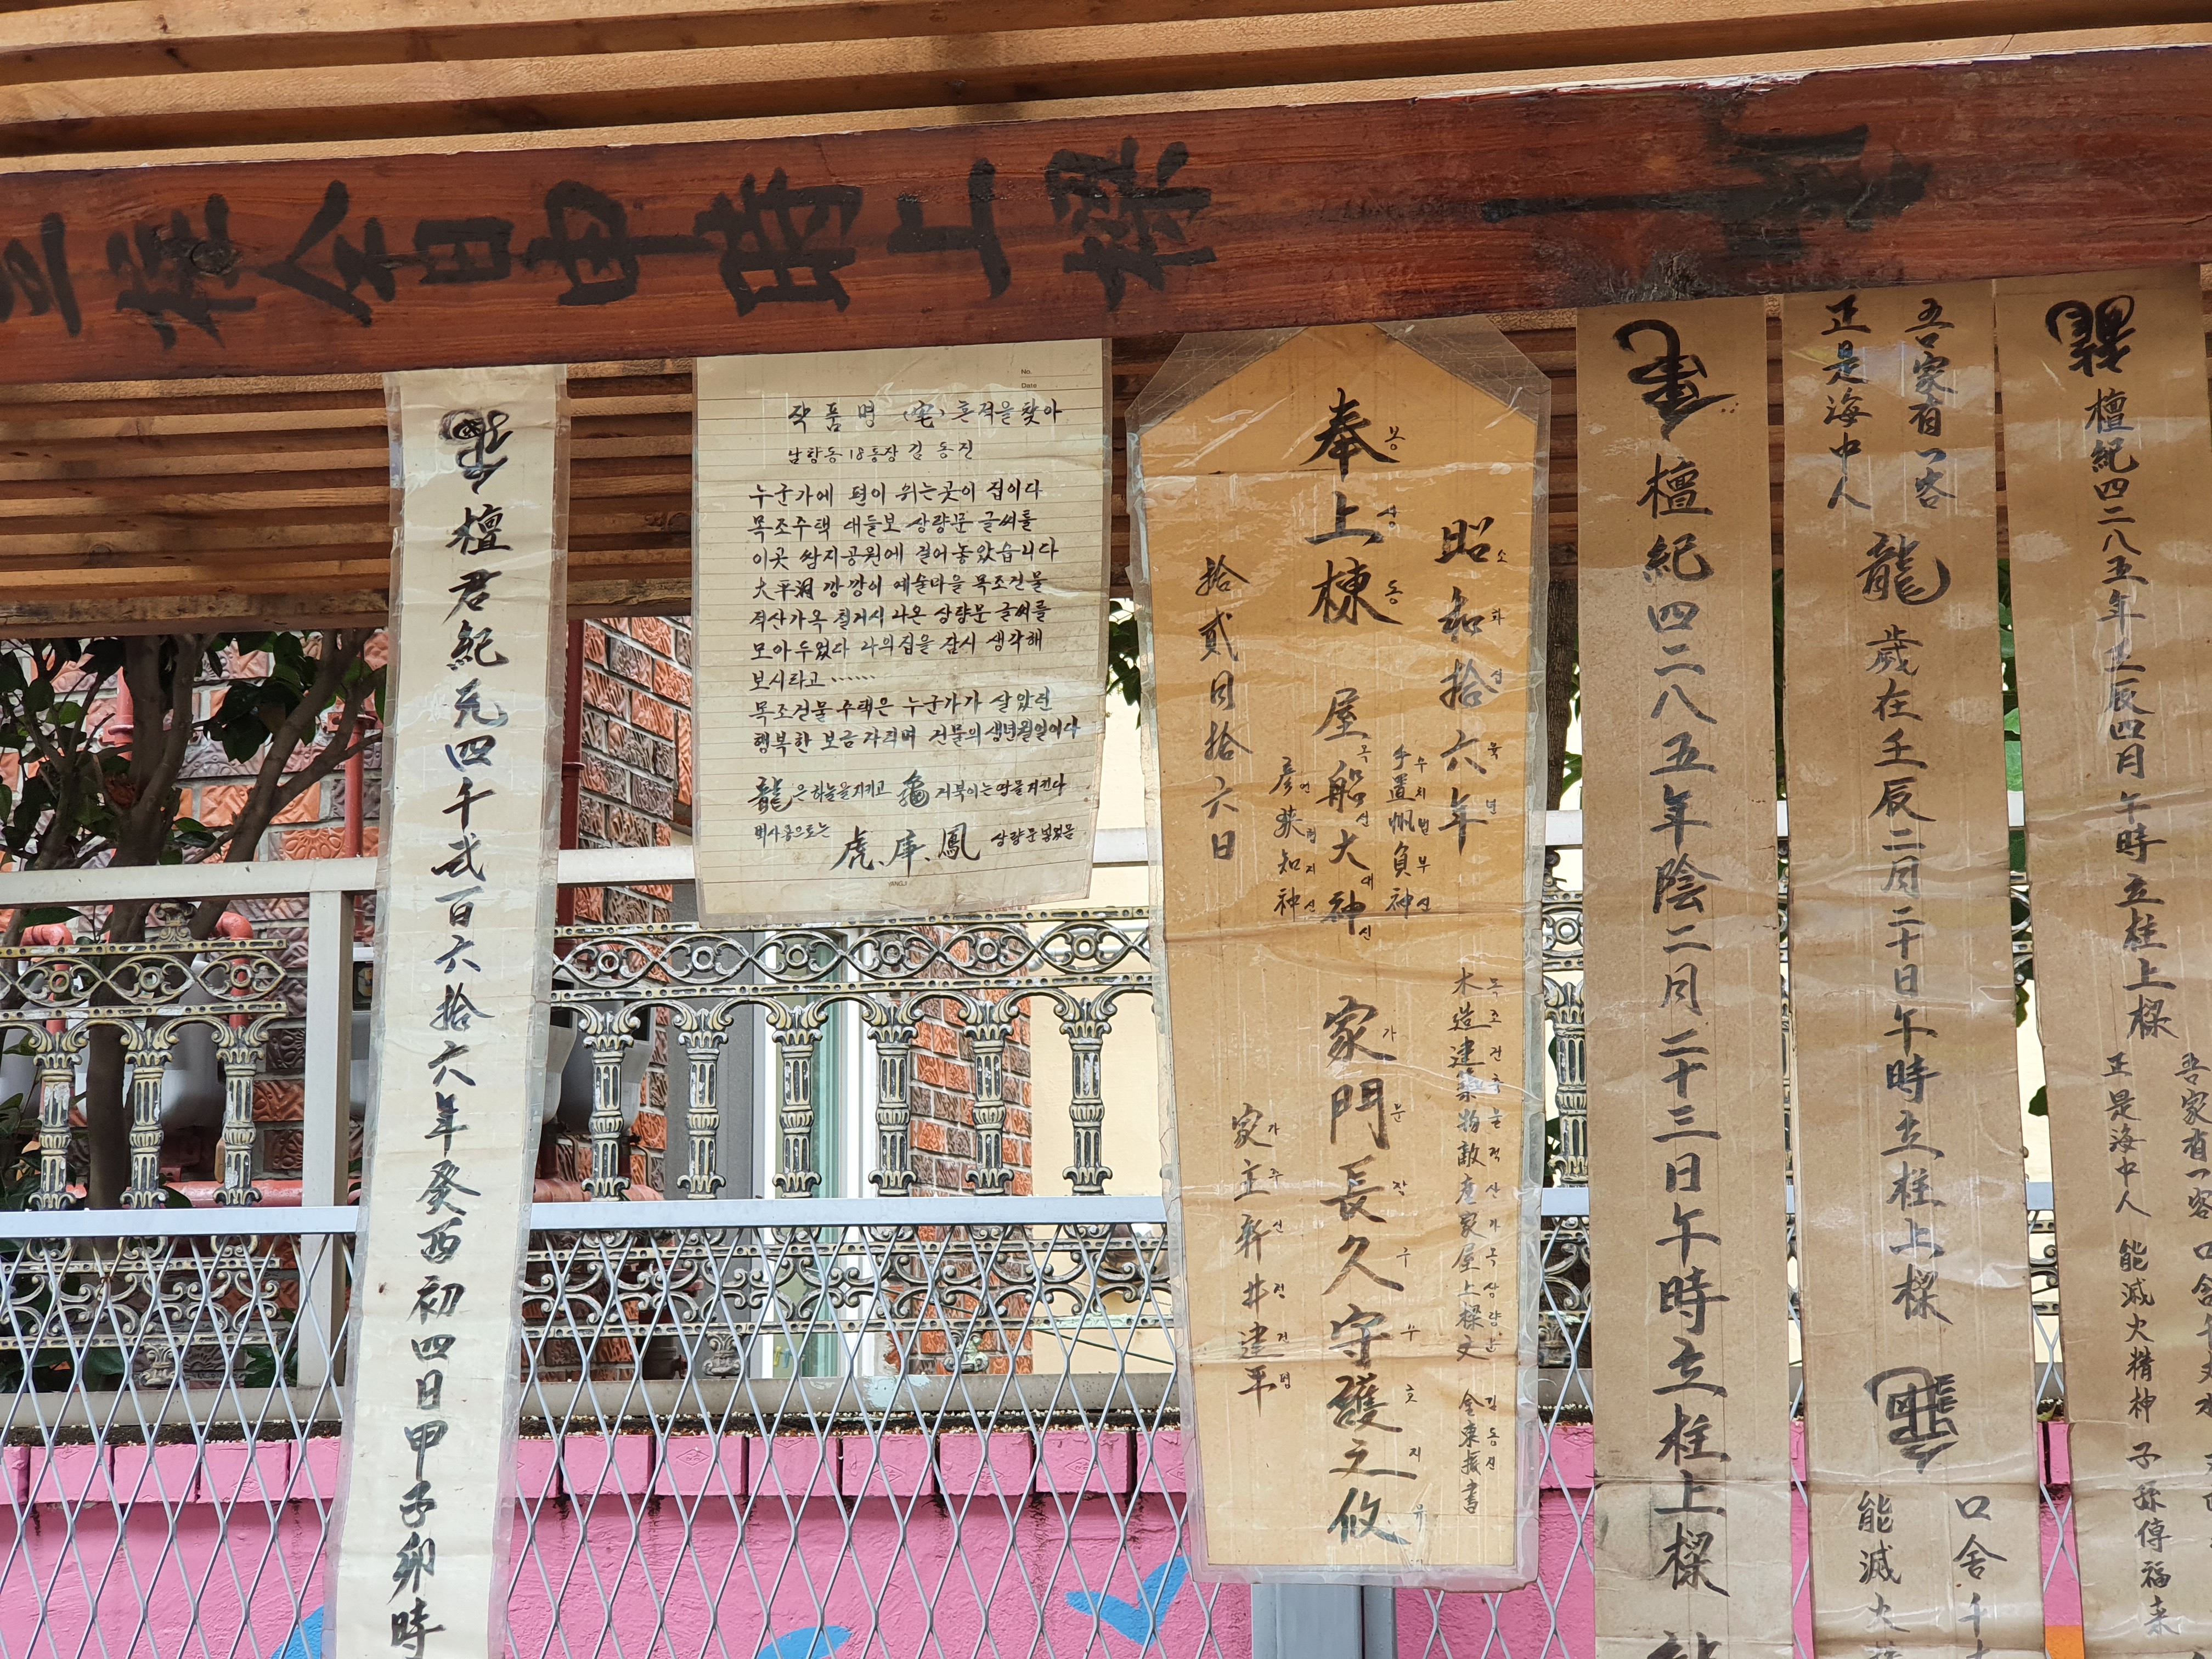 立柱仝日申時上樑
龜
檀君紀元四千弐百六拾六年癸酉初四日甲子卯時
No.
Date
작품명 (宅) 흔적을 찾아
남항동 18통장 김동진
누군가에 편이 쉬는곳이 집이다
목조주택 대들보 상량문 글씨를
이곳 쌈지공원에 걸어놓았습니다
大平洞 깡깡이 예술마을 목조건물
적산가옥 철거시 나온 상량문 글씨를
모아두었다 나의집을 잠시 생각해
보시라고 ······
목조건물 주택은 누군가가 살았던
행복한 보금자리며 건물의 생년월일이다
龍은 하늘을지키고 龜 거북이는 땅을지킨다
虎、庫、鳳 상량문
昭和拾六年
소화십육년
手置帆負神
수치범부신
奉上棟 屋船大神 家門長久守護之攸
봉상동 옥선대신 가문장구수호지유
彦狹知神
언협지신
拾貳月拾六日
木造建築物敵産家屋上樑文 金東振書
목조건축물적산가옥상량문 김동진
家主新井建平
가주신정건평
檀紀四二八五年陰二月二十三日午時立柱上樑
吾家有一客
正是海中人
龍 歲在壬辰二月二十日午時立柱上樑
口含千
能滅火
檀紀四二八五年壬辰四月 午時立柱上樑
吾家有一客
正是海中人 能滅火精神 子孫傳福来